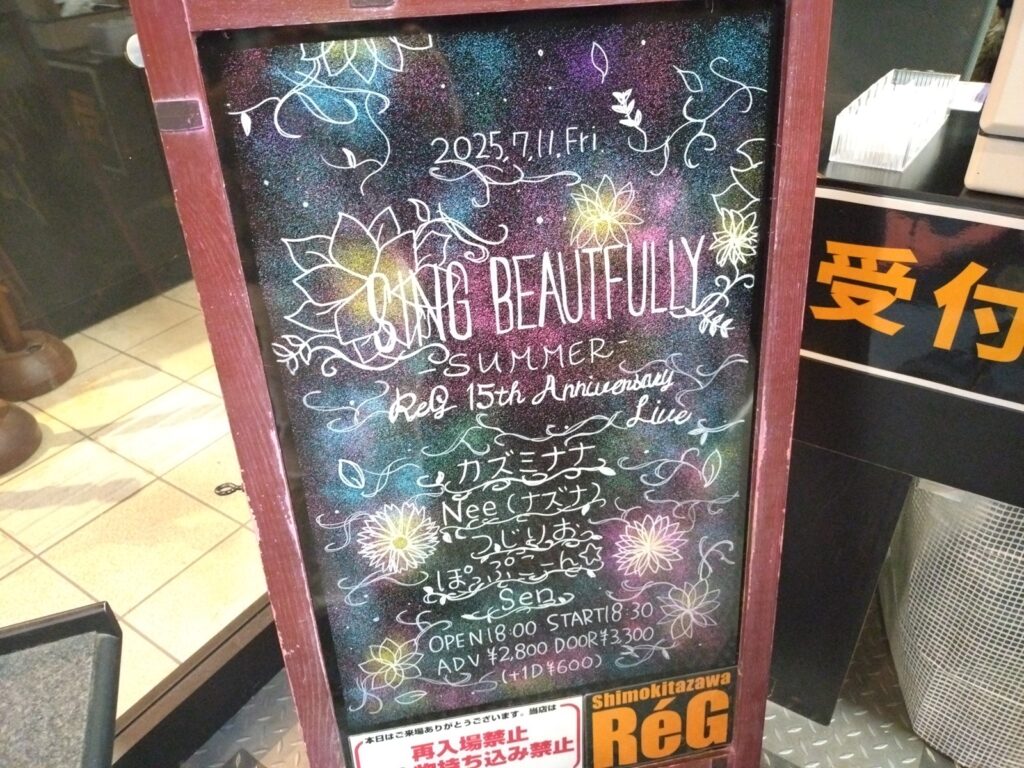 2025.7.11.Fri.
SING BEAUTFULLY
-SUMMER-
ReG 15th Anniversary
Live
カズミナナ
Nee(ナズナ)
つじりお
ぽっぷこーん☆
Sen
OPEN18:00 START18:30
ADV ¥2,800 DOOR¥3,300
(+1D¥600)
本日はご来場ありがとうございます。当店は
再入場禁止
持ち込み禁止
Shimokitazawa
RéG
受付